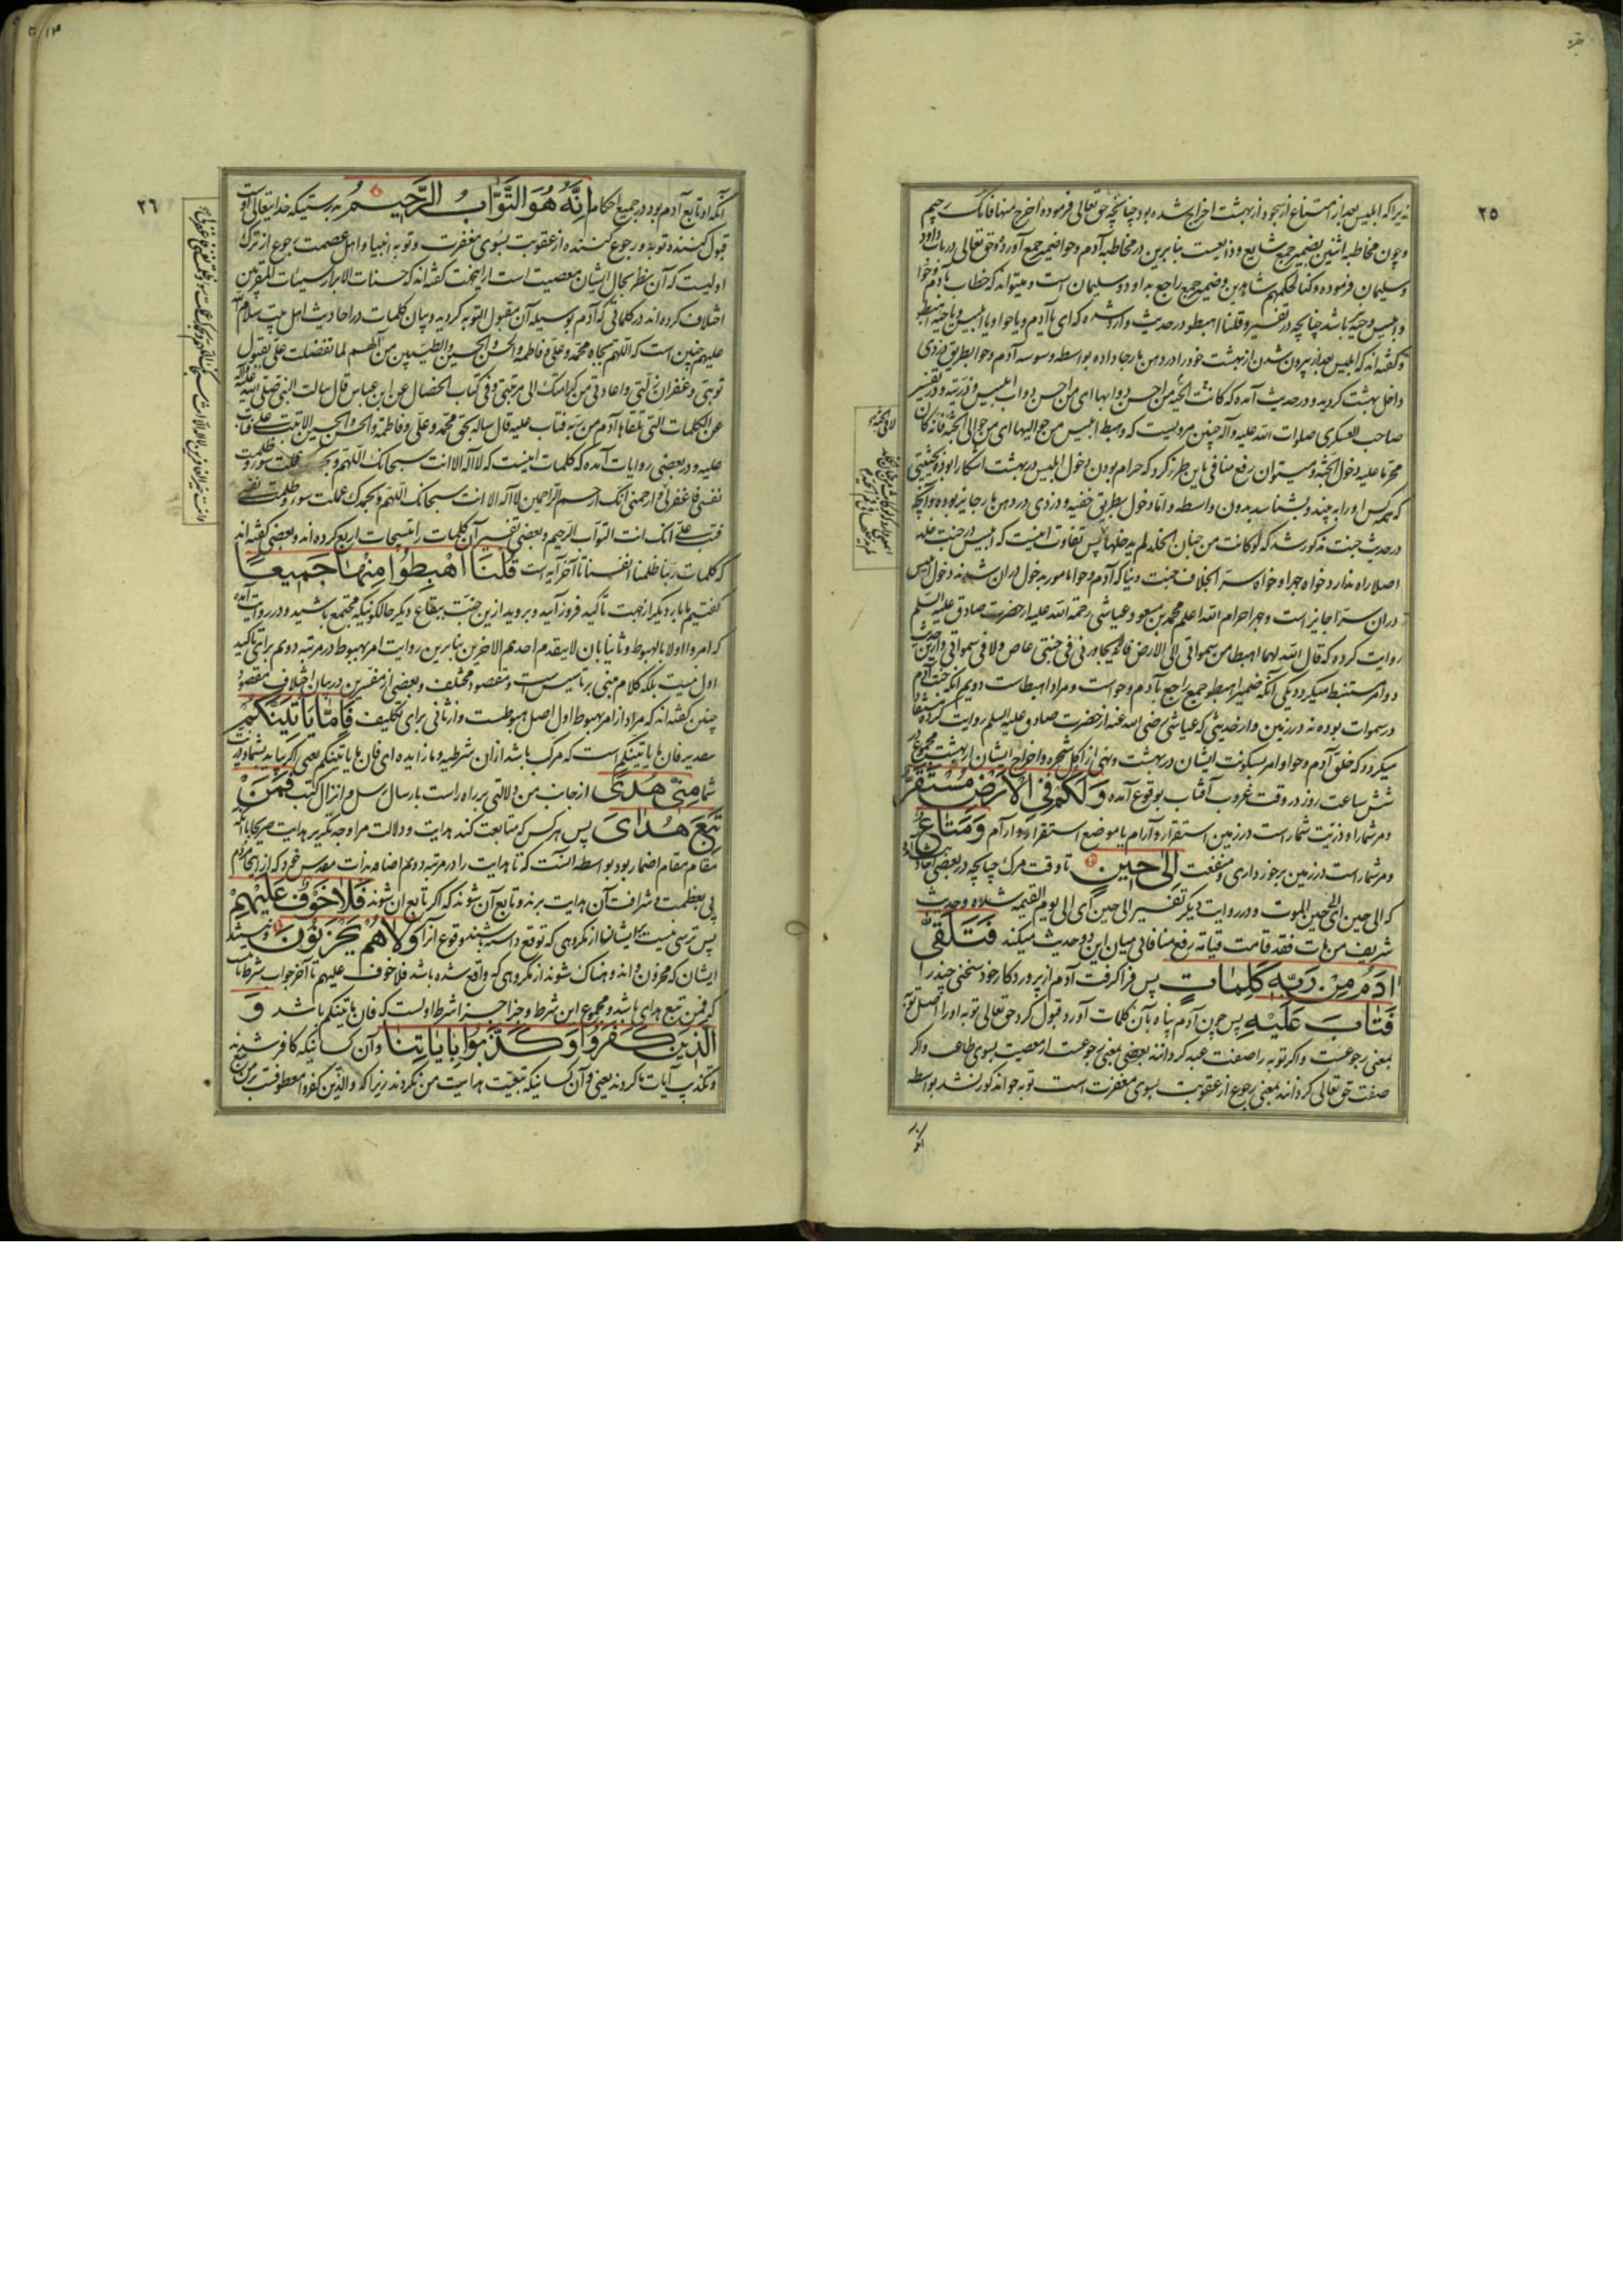 ٢٥
نه زیرا که ابلیس بعد از امتناع از سجود از بهشت اخراج شده بود چنانچه حق تعالی فرموده اخرج منها فانک رجیم
و چون مخاطبه اثنین بضمیر جمع شایع و ذایعست بنابرین در مخاطبه آدم و حوا ضمیر جمع آورده و حق تعالی در باب داود
و سلیمان فرموده و کنا لحکمهم شاهدین و ضمیر جمع راجع بداود و سلیمان است و میتواند که خطاب بآدم و حوا
و ابلیس و حیه باشد چنانچه در تفسیر و قلنا اهبطوا در حدیث وارد شده که ای یا آدم و یا حوا و یا ابلیس و یا حیه اهبطوا
و گفته‌اند که ابلیس بعد از بیرون شدن از بهشت خود را در دهن مار جا داده بواسطه وسوسه آدم و حوا بطریق دزدی
داخل بهشت گردید و در حدیث آمده که کانت الحیه من احسن دوابها ای من احسن دواب ابلیس و ذریته و در تفسیر
صاحب العسکری صلوات الله علیه و آله چنین مرویست که و هبط ابلیس من حوالیها ای من حوالی الجنه فانه کان
محرما علیه دخول الجنه و میتوان رفع منافی باین طرز کرد که حرام بودن دخول ابلیس در بهشت آشکارا بوده بحیثیتی
که همه کس او را به بیند و بشناسد بدون واسطه و اما دخول بطریق خفیه و دزدی در دهن مار جایز بوده و آنچه
در حدیث جنت مذکور شد که لو کانت من جنان الخلد لم یدخلها پس تفاوت اینست که ابلیس در جنت خلد
اصلا راه ندارد خواه جهرا و خواه سرا بخلاف جنت دنیا که آدم و حوا مامور بدخول دران شدند دخول ابلیس
دران سرا جایز است و جهرا حرام الله اعلم محمد بن مسعود عیاشی رحمة الله علیه از حضرت صادق علیه السلم
روایت کرده که قال الله لهما اهبطا من سمواتی الی الارض فانه لا یجاورنی فی جنتی عاص و لا فی سمواتی و ازین حدیث
دو امر مستنبط میگردد یکی آنکه ضمیر اهبطوا جمع راجع بآدم و حواست و مراد اهبطاست دویم آنکه جنت آدم
در سموات بوده نه در زمین و از حدیثی که عیاشی رضی الله عنه از حضرت صادق علیه السلم روایت کرده مستفاد
میگردد که خلق آدم و حوا و امر بسکونت ایشان در بهشت و نهی از اکل شجره و اخراج ایشان از بهشت مجموع در
شش ساعت روز در وقت غروب آفتاب بوقوع آمده وَلَكُمْ فِي الْأَرْضِ مُسْتَقَرٌّ
و مر شما را و ذریت شما راست در زمین استقرار و آرام یا موضع استقرار و آرام وَمَتَاعٌ
و مر شما راست در زمین برخورداری و منفعت إِلَىٰ حِينٍ تا وقت مرگ چنانچه در بعضی احادیث
که الی حین ای الی حین الموت و در روایت دیگر تفسیر الی حین ای الی یوم القیمه
شریف من مات فقد قامت قیامته رفع منافاتی میان این دو حدیث میکند فَتَلَقَّىٰ
آدَمُ مِنْ رَبِّهِ كَلِمَاتٍ پس فرا گرفت آدم از پروردگار خود سخنی چند را
فَتَابَ عَلَيْهِ پس چون آدم پناه بآن کلمات آورد قبول کرد حق تعالی توبه او را اصل توبه
بمعنی رجوعست و اگر توبه را صفت عبد گردانند بعضی بمعنی رجوعست از معصیت بسوی طاعت و اگر
صفت حق تعالی گردانند بمعنی رجوع از عقوبت بسوی مغفرت است توبه حوا مذکور نشد بواسطه
آنکه
٢٦
آنکه او تابع آدم بود در جمیع احکام إِنَّهُ هُوَ التَّوَّابُ الرَّحِيمُ بدرستیکه خدایتعالی اوست
قبول کننده توبه و رجوع کننده از عقوبت بسوی مغفرت و توبه انبیا و اهل عصمت رجوع از ترک
اولیست که آن نظر بحال ایشان معصیت است ازینجهت گفته‌اند که حسنات الابرار سیئات المقربین
اختلاف کرده‌اند در کلماتی که آدم بوسیله آن مقبول التوبه گردید و بیان کلمات در احادیث اهل بیت سلام الله
علیهم چنین است که اللهم بجاه محمد و علی و فاطمه و الحسن و الحسین و الطیبین من آلهم لما تفضلت علی بقبول
توبتی و غفران زلتی و اعادتی من کرامتک الی مرتبتی و فی کتاب الخصال عن ابن عباس قال سالت النبی صلی الله علیه و آله
عن الکلمات التی تلقاها آدم من ربه فتاب علیه قال ساله بحق محمد و علی و فاطمه و الحسن و الحسین الا تبت علی فتاب
علیه و در بعضی روایات آمده که کلمات اینست که لا اله الا انت سبحانک اللهم و بحمدک عملت سوء و ظلمت
نفسی فاغفر لی و ارحمنی انک ارحم الراحمین لا اله الا انت سبحانک اللهم و بحمدک عملت سوء و ظلمت نفسی
فتب علی انک انت التواب الرحیم و بعضی تفسیر آن کلمات را تسبیحات اربع کرده‌اند و بعضی گفته‌اند
که کلمات ربنا ظلمنا انفسنا تا آخر آیه است قُلْنَا اهْبِطُوا مِنْهَا جَمِيعًا
گفتیم ما بار دیگر از جهت تاکید فروز آئید و بروید ازین جنت ببقاع دیگر حالکونیکه مجتمع باشید و در روایت آمده
که امروا اولا بالهبوط و ثانیا بان لا یتقدم احدهم الاخرین بنابرین روایت امر بهبوط در مرتبه دویم برای تاکید
اول نیست بلکه کلام مبنی بر تاسیس است و مقصود مختلف و بعضی از مفسرین در بیان اختلاف مقصود
چنین گفته‌اند که مراد از امر بهبوط اول اصل هبوطست و از ثانی برای تکلیف فَإِمَّا يَأْتِيَنَّكُمْ
مصدر بفان ما یاتینکم است که مرکب باشد از ان شرطیه و ما زایده ای فان ما یاتینکم یعنی اگر بیاید بشما
شما مِنِّي هُدًى از جانب من دلالتی بر راه راست بارسال رسل و انزال کتب فَمَنْ
تَبِعَ هُدَايَ پس هر کس که متابعت کند هدایت و دلالت مرا وجه تکریر هدایت صریحا با آنکه
مقام مقام اضمار بود بواسطه آنست که تا هدایت را در مرتبه دویم اضافه بذات مقدس خود کرد
پی بعظمت و شرافت آن هدایت برند و تابع آن شوند که اگر تابع ان شوند فَلَا خَوْفٌ عَلَيْهِمْ
پس ترسی نیست بر ایشان از مکروهی که توقع داشته باشند وقوع آنرا وَلَا هُمْ يَحْزَنُونَ
ایشان که محزون و اندوهناک شوند از مکروهی که واقع شده باشد فلا خوف علیهم تا آخر جواب شرط
که فمن تبع هدای باشد و مجموع این شرط و جزا جزا شرط اولست که فان یاتینکم باشد وَ
الَّذِينَ كَفَرُوا وَكَذَّبُوا بِآيَاتِنَا و آن کسانیکه کافر شدند
و تکذیب آیات ما کردند یعنی و آن کسانیکه تبعیت هدایت من نکردند زیرا که و الذین کفروا معطوفست بر من تبع